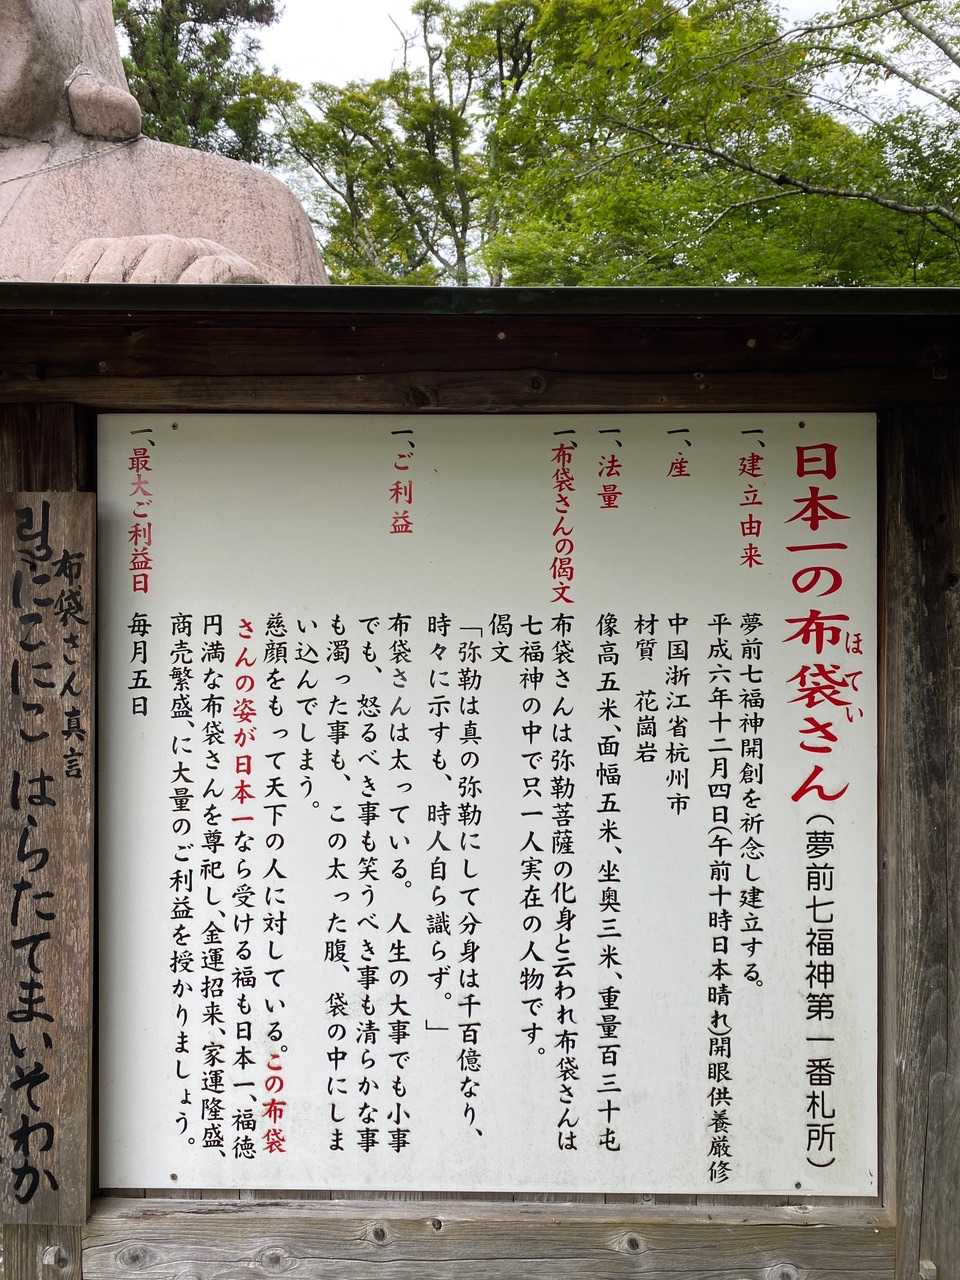 日本一の布袋さん（夢前七福神第一番札所）
ほてい
一、建立由来　夢前七福神開創を祈念し建立する。
平成六年十二月四日（午前十時日本晴れ）開眼供養厳修
一、産　中国浙江省杭州市
材質　花崗岩
一、法量　像高五米、面幅五米、坐奥三米、重量百三十屯
一、布袋さんの偈文　布袋さんは弥勒菩薩の化身と云われ布袋さんは
七福神の中で只一人実在の人物です。
偈文
「弥勒は真の弥勒にして分身は千百億なり、
時々に示すも、時人自ら識らず。」
一、ご利益　布袋さんは太っている。人生の大事でも小事
でも、怒るべき事も笑うべき事も清らかな事
も濁った事も、この太った腹、袋の中にしま
い込んでしまう。
慈顔をもって天下の人に対している。この布袋
さんの姿が日本一なら受ける福も日本一、福徳
円満な布袋さんを尊祀し、金運招来、家運隆盛、
商売繁盛、に大量のご利益を授かりましょう。
一、最大ご利益日　毎月五日
布袋さん真言
にこにこ はらたてまいそわか